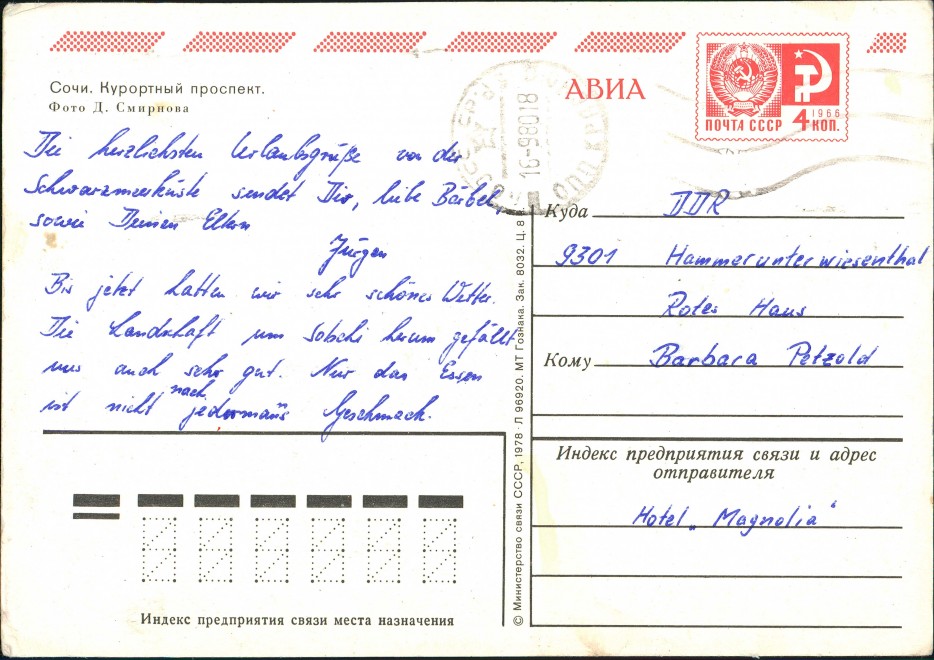 Сочи. Курортный проспект.
Фото Д. Смирнова
АВИА
1966
ПОЧТА СССР 4 КОП.
16-98018
Die herzlichsten Urlaubsgrüße von der
Schwarzmeerküste sendet Dir, liebe Bärbel,
sowie Deinen Eltern
Jürgen
Bis jetzt hatten wir sehr schönes Wetter.
Die Landschaft um Sotschi herum gefällt
uns auch sehr gut. Nur das Essen
ist nicht nach jedermanns Geschmack.
Куда DDR
9301 Hammerunterwiesenthal
Rotes Haus
Кому Barbara Petzold
Индекс предприятия связи и адрес
отправителя
Hotel „Magnolia“
Индекс предприятия связи места назначения
© Министерство связи СССР, 1978 · Л 96920. МТ Гознака. Зак. 8032. Ц. 8